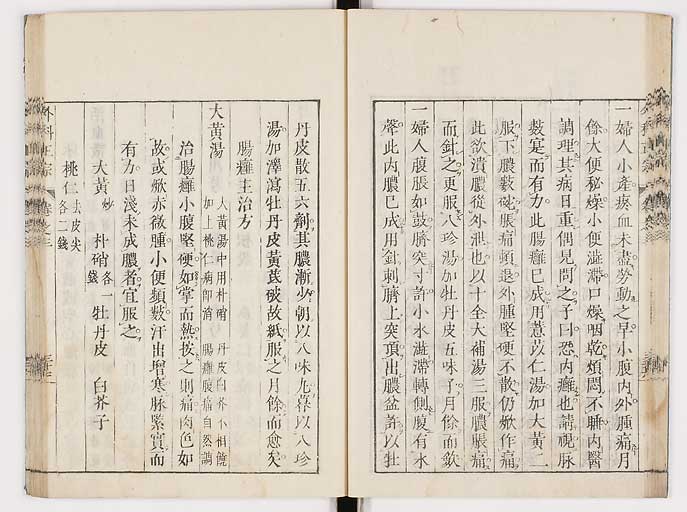 一婦人小產瘀血未盡勞動之早小腹內外腫痛月
餘大便秘燥小便澁滯口燥咽乾煩悶不睡內醫
調理其病日重偶見問之予曰恐內癰也請視脉
數實而有力此腸癰已成用薏苡仁湯加大黃二
服下膿數碗脹痛頓退外腫堅硬不散仍焮作痛
此欲潰膿從外泄也以十全大補湯三服膿脹痛
而針之更服八珍湯加牡丹皮五味子月餘而歛
一婦人腹脹如鼓臍突寸許小水澁滯轉側腹有水
聲此內膿已成用針刺臍上突頂出膿盆許以牡
丹皮散五六劑其膿漸少朝以八味丸暮以八珍
湯加澤瀉牡丹皮黃芪破故紙服之月餘而愈矣
腸癰主治方
大黃湯
大黃湯中用朴硝 丹皮白芥不相饒
加上桃仁病即消 腸癰腹痛自然調
治腸癰小腹堅硬如掌而熱按之則痛肉色如
故或焮赤微腫小便頻數汗出增寒脉緊實而
有力日淺未成膿者宜服之
大黃炒 朴硝各一錢 牡丹皮 白芥子
桃仁去皮尖各二錢
外科正宗 卷之三